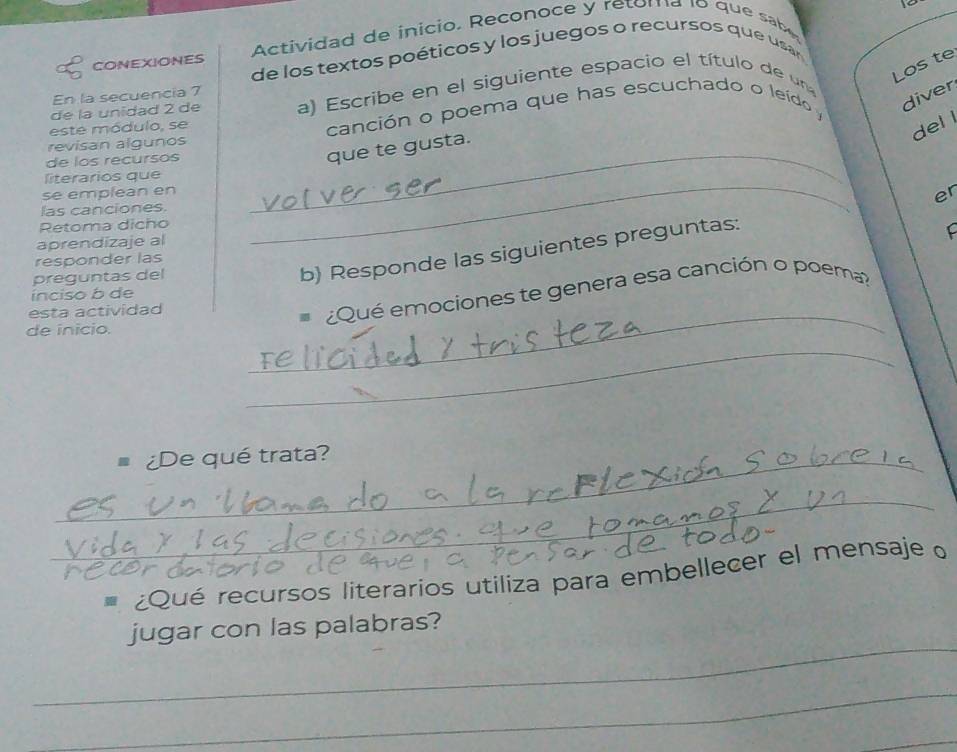 Actividad de inicio. Reconoce y retoma lo que sabes
de los textos poéticos y los juegos o recursos que usan
CONEXIONES
En la secuencia 7
de la unidad 2 de
este módulo, se
revisan algunos
de los recursos
literarios que
se emplean en
las canciones.
Retoma dicho
aprendizaje al
responder las
preguntas del
inciso b de
esta actividad
de inicio.
a) Escribe en el siguiente espacio el título de una
canción o poema que has escuchado o leído y
que te gusta.
volver ser
b) Responde las siguientes preguntas:
¿Qué emociones te genera esa canción o poema?
Felicidad y tristeza
¿De qué trata?
es un llamado a la reflexión sobre la
vida y las decisiones. que tomamos y un
recordatorio de que, a pensar de todo-
¿Qué recursos literarios utiliza para embellecer el mensaje o
jugar con las palabras?
Los te
diver
del l
er